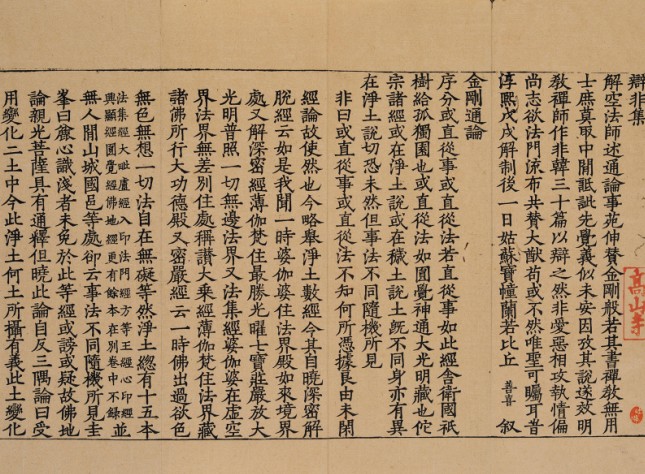 辯非集
解空法師述通論事苑伸賛金剛般若其書禪教無用
士庶莫取中間詆訾先覺義似未安因攷其說遂效明
教禪師作非韓三十篇以辯之然非愛惡相攻執情偏
尚志欲法門流布共賛大猷苟或不然唯聖可囑耳旹
淳熙戊戌解制後一日姑蘇寶幢蘭若比丘 善喜 叙
金剛通論
序分或直從事或直從法若直從事如此經舎衛國祇
樹給孤獨園也或直從法如圎覺神通大光明藏也佗
宗諸經或在淨土說或在穢土說土旣不同身亦有異
在淨土說切恐未然但事法不同隨機所見
非曰或直從事或直從法不知何所憑據良由未閑
經論故使然也今略舉淨土數經令其自曉深密解
脫經云如是我聞一時婆伽婆住法界殿如來境界
處又解深密經薄伽梵住最勝光曜七寶莊嚴放大
光明普照一切無邊法界又法集經婆伽婆在虛空
界法界無差別住處稱讚大乘經薄伽梵住法界藏
諸佛所行大功德殿又密嚴經云一時佛出過欲色
無色無想一切法自在無礙等然淨土緫有十五本
法集經大毗盧經入印法門經方等王經心印經
興顯經圎覺經佛地經更有餘本在別卷中不錄
並
無人間山城國邑等處却云事法不同隨機所見圭
峯曰庶心識淺者未免於此等經或謗或疑故佛地
論親光菩薩具有通釋但曉此論自反三隅論曰受
用變化二土中今此淨土何土所攝有義此土變化
高山寺